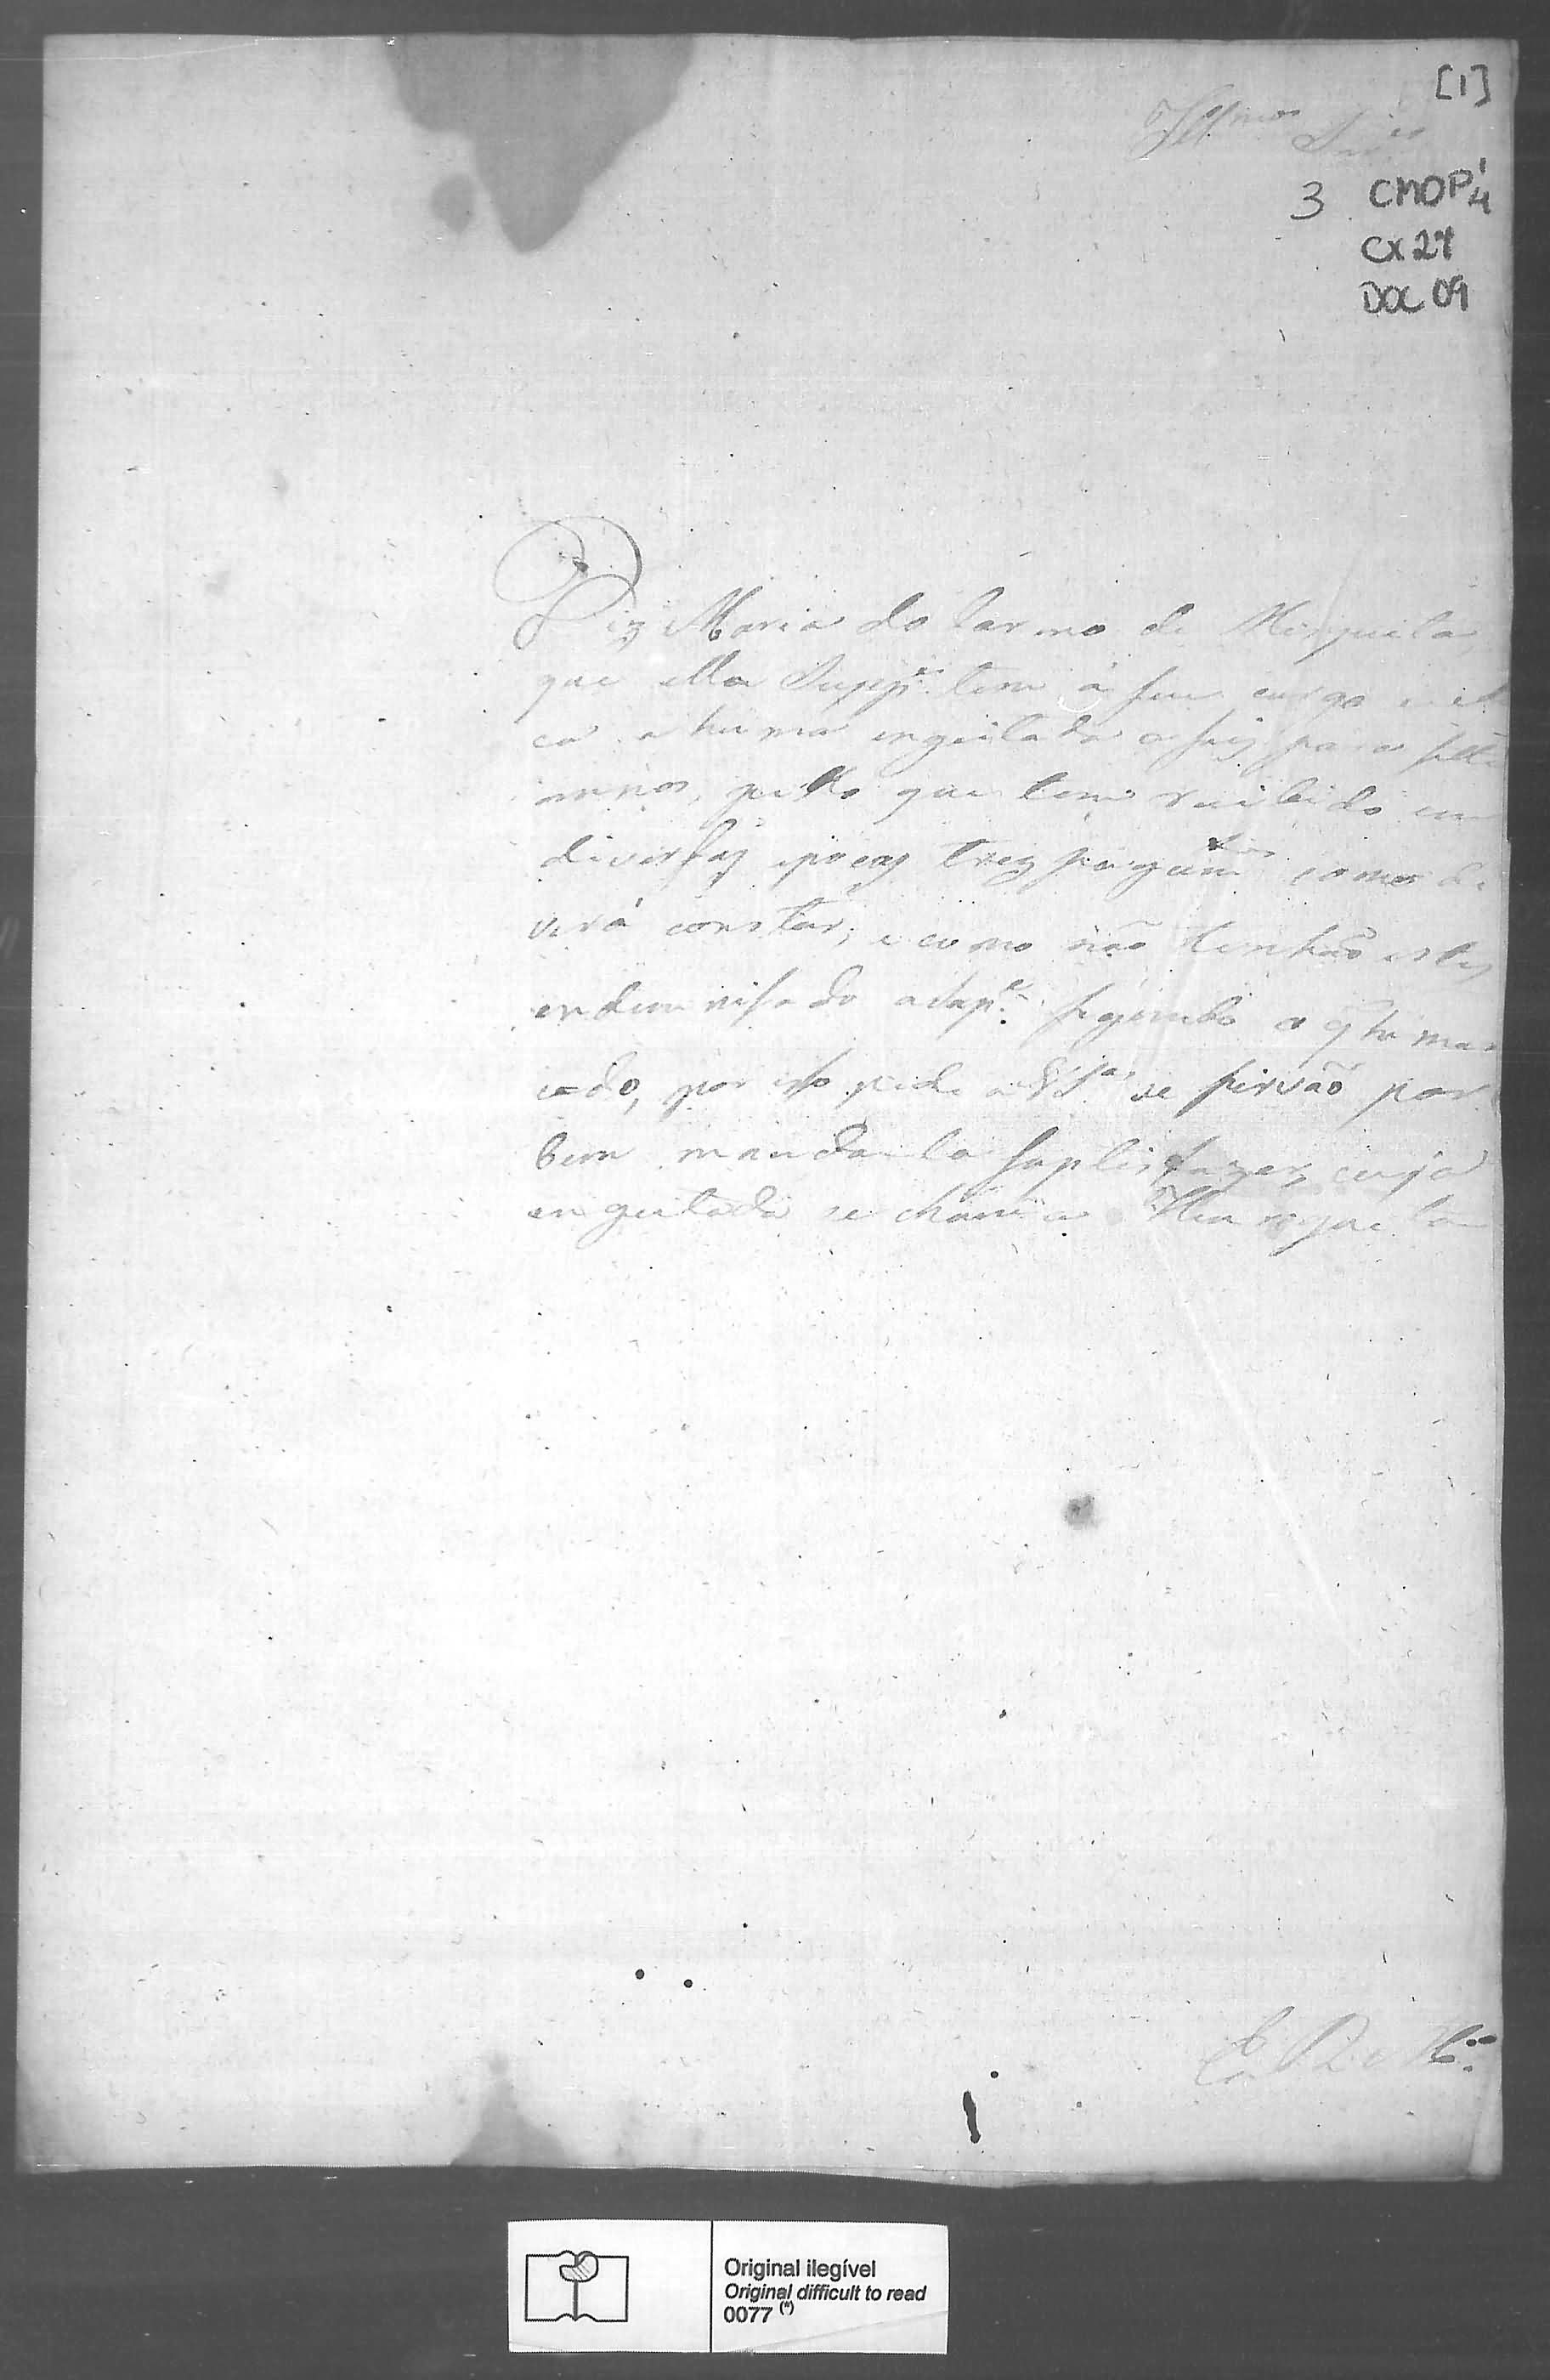 [1]
Illmos Snres
3 CMOP 1/4
CX 27
DOC 09
Diz Maria do Carmo de
que ella Supp.e tem á seu cargo
ca a huma engeitada
annos, pello que tem recibido em
diversas epocas trez pagam.tos como de
verá constar, e como não tenhão estes
endemnisado a Sup.e segundo o q he mar
cado, por isso pede a V S.as se sirvão por
bem mandala satisfazer, cuja
engeitada se chama
E. R. M.ce
Original ilegível
Original difficult to read
0077 (*)